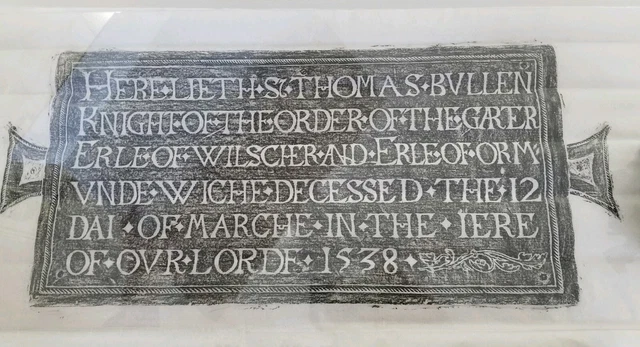 HERE·LIETH·Sr·THOMAS·BVLLEN
KNIGHT·OF·THE·ORDER·OF·THE·GARTER
ERLE·OF·WILSCHER·AND·ERLE·OF·ORM
VNDE·WICHE·DECESSED·THE·12
DAI·OF·MARCHE·IN·THE·IERE
OF·OVR·LORDE·1538·